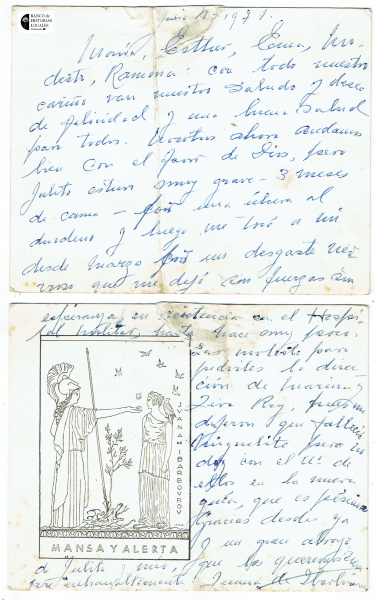 BANCO de
HISTORIAS
LOCALES
Junio 12-1971.
María, Esther, Ema, Mo-
desto, Ramona: con todo nuestro
cariño van nuestros saludos y deseo
de felicidad y una buena salud
para todos. Nosotros ahora andamos
bien con el favor de Dios, pero
Julito estuvo muy grave - 3 meses
de cama - una úlcera al
duodeno y luego me tocó a mí
desde marzo un desgaste ner-
vioso que me dejó con fuerzas sin
esperanza, en existencia en el Hospi-
tal militar, hasta hace muy poco.
Las molesto para
pedirles la direc-
ción de
Rey, pues me
dijeron que falleció
pero no
doy con el Nº de
ellos en la nueva
guía, que es pésima
Gracias desde ya
y un gran abrazo
de Julito y mío, que las queremos siem-
pre entrañablemente Juana de Ibarbourou
JVANA DE IBARBOVROV
MANSA Y ALERTA